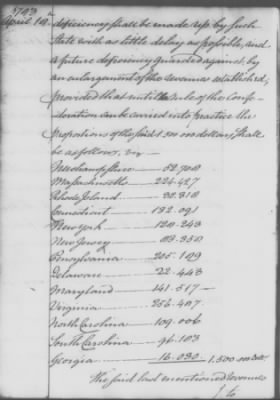 1783
April 18. deficiency shall be made up by such
State with as little delay as possible, and
a future deficiency guarded against, by
an enlargement of the revenues established;
provided that until the rule of the Confe-
deration can be carried into practice the
proportions of the said 1,500,000 dollars, shall
be as follows, viz—
Newhampshire — 52.708
Massachusetts — 224.427
Rhode Island — 32.318
Connecticut — 132.091
New York — 128.243
New Jersey — 83.358
Pennsylvania — 205.189
Delaware — 22.443
Maryland — 141.517
Virginia — 256.487
North Carolina — 109.006
South Carolina — 96.183
Georgia — 16.030 1,500.000 Dols.
The said last mentioned revenues